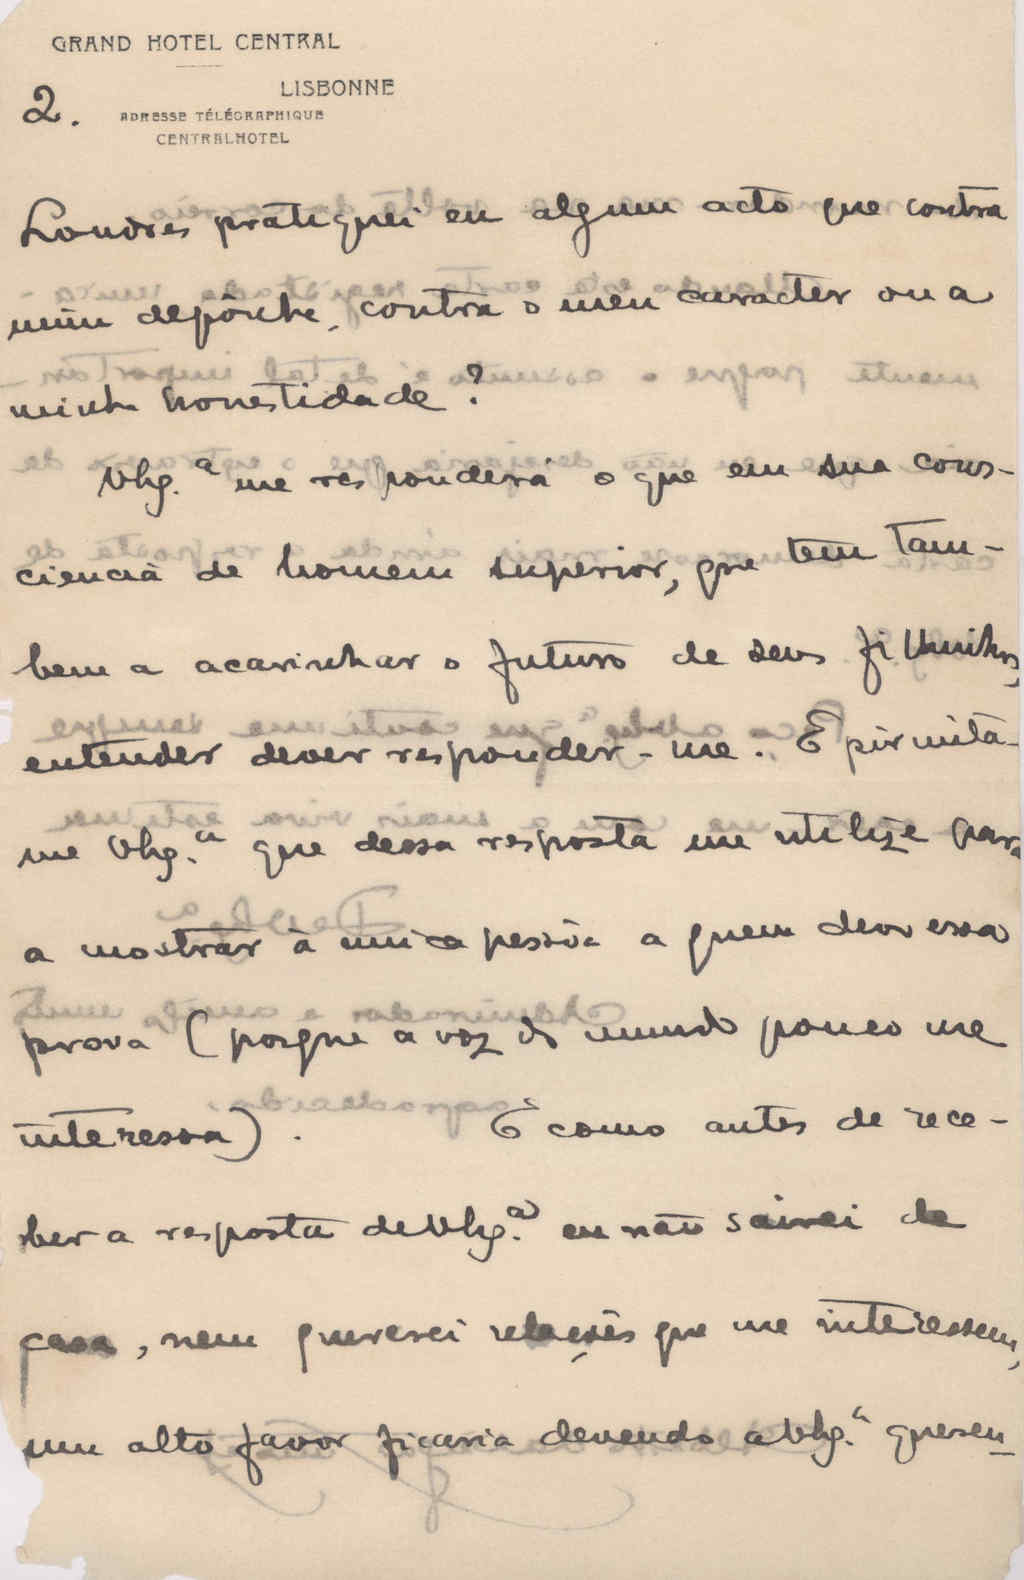 GRAND HOTEL CENTRAL
LISBONNE
2.
ADRESSE TÉLÉGRAPHIQUE
CENTRALHOTEL
Londres pratiquei eu algum acto que contra
mim depônha, contra o meu caracter ou a
minha honestidade?
VExª. me responderá o que em sua cons-
ciencia de homem superior, que tem tam-
bem a acarinhar o futuro de seus filhinhos,
entender dever responder-me. E pirmita-
me VExª. que dessa resposta me utilize para
a mostrar à unica pessôa a quem devo essa
prova (porque a voz do mundo pouco me
interessa). E como antes de rece-
ber a resposta de VExª. eu não sairei de
casa, nem quererei relações que me interessem,
um alto favor ficaria devendo a VExª. queren